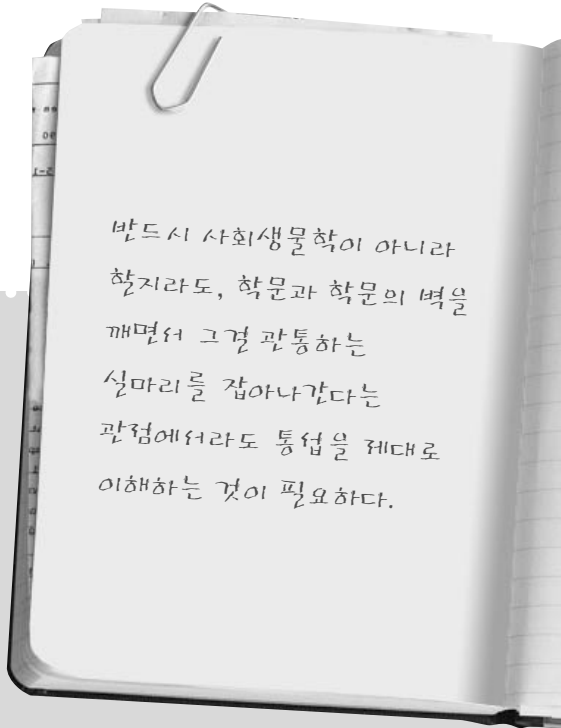 반드시 사회생물학이 아니라
할지라도, 학문과 학문의 벽을
깨면서 그걸 관통하는
실마리를 잡아나간다는
관점에서라도 통섭을 제대로
이해하는 것이 필요하다.